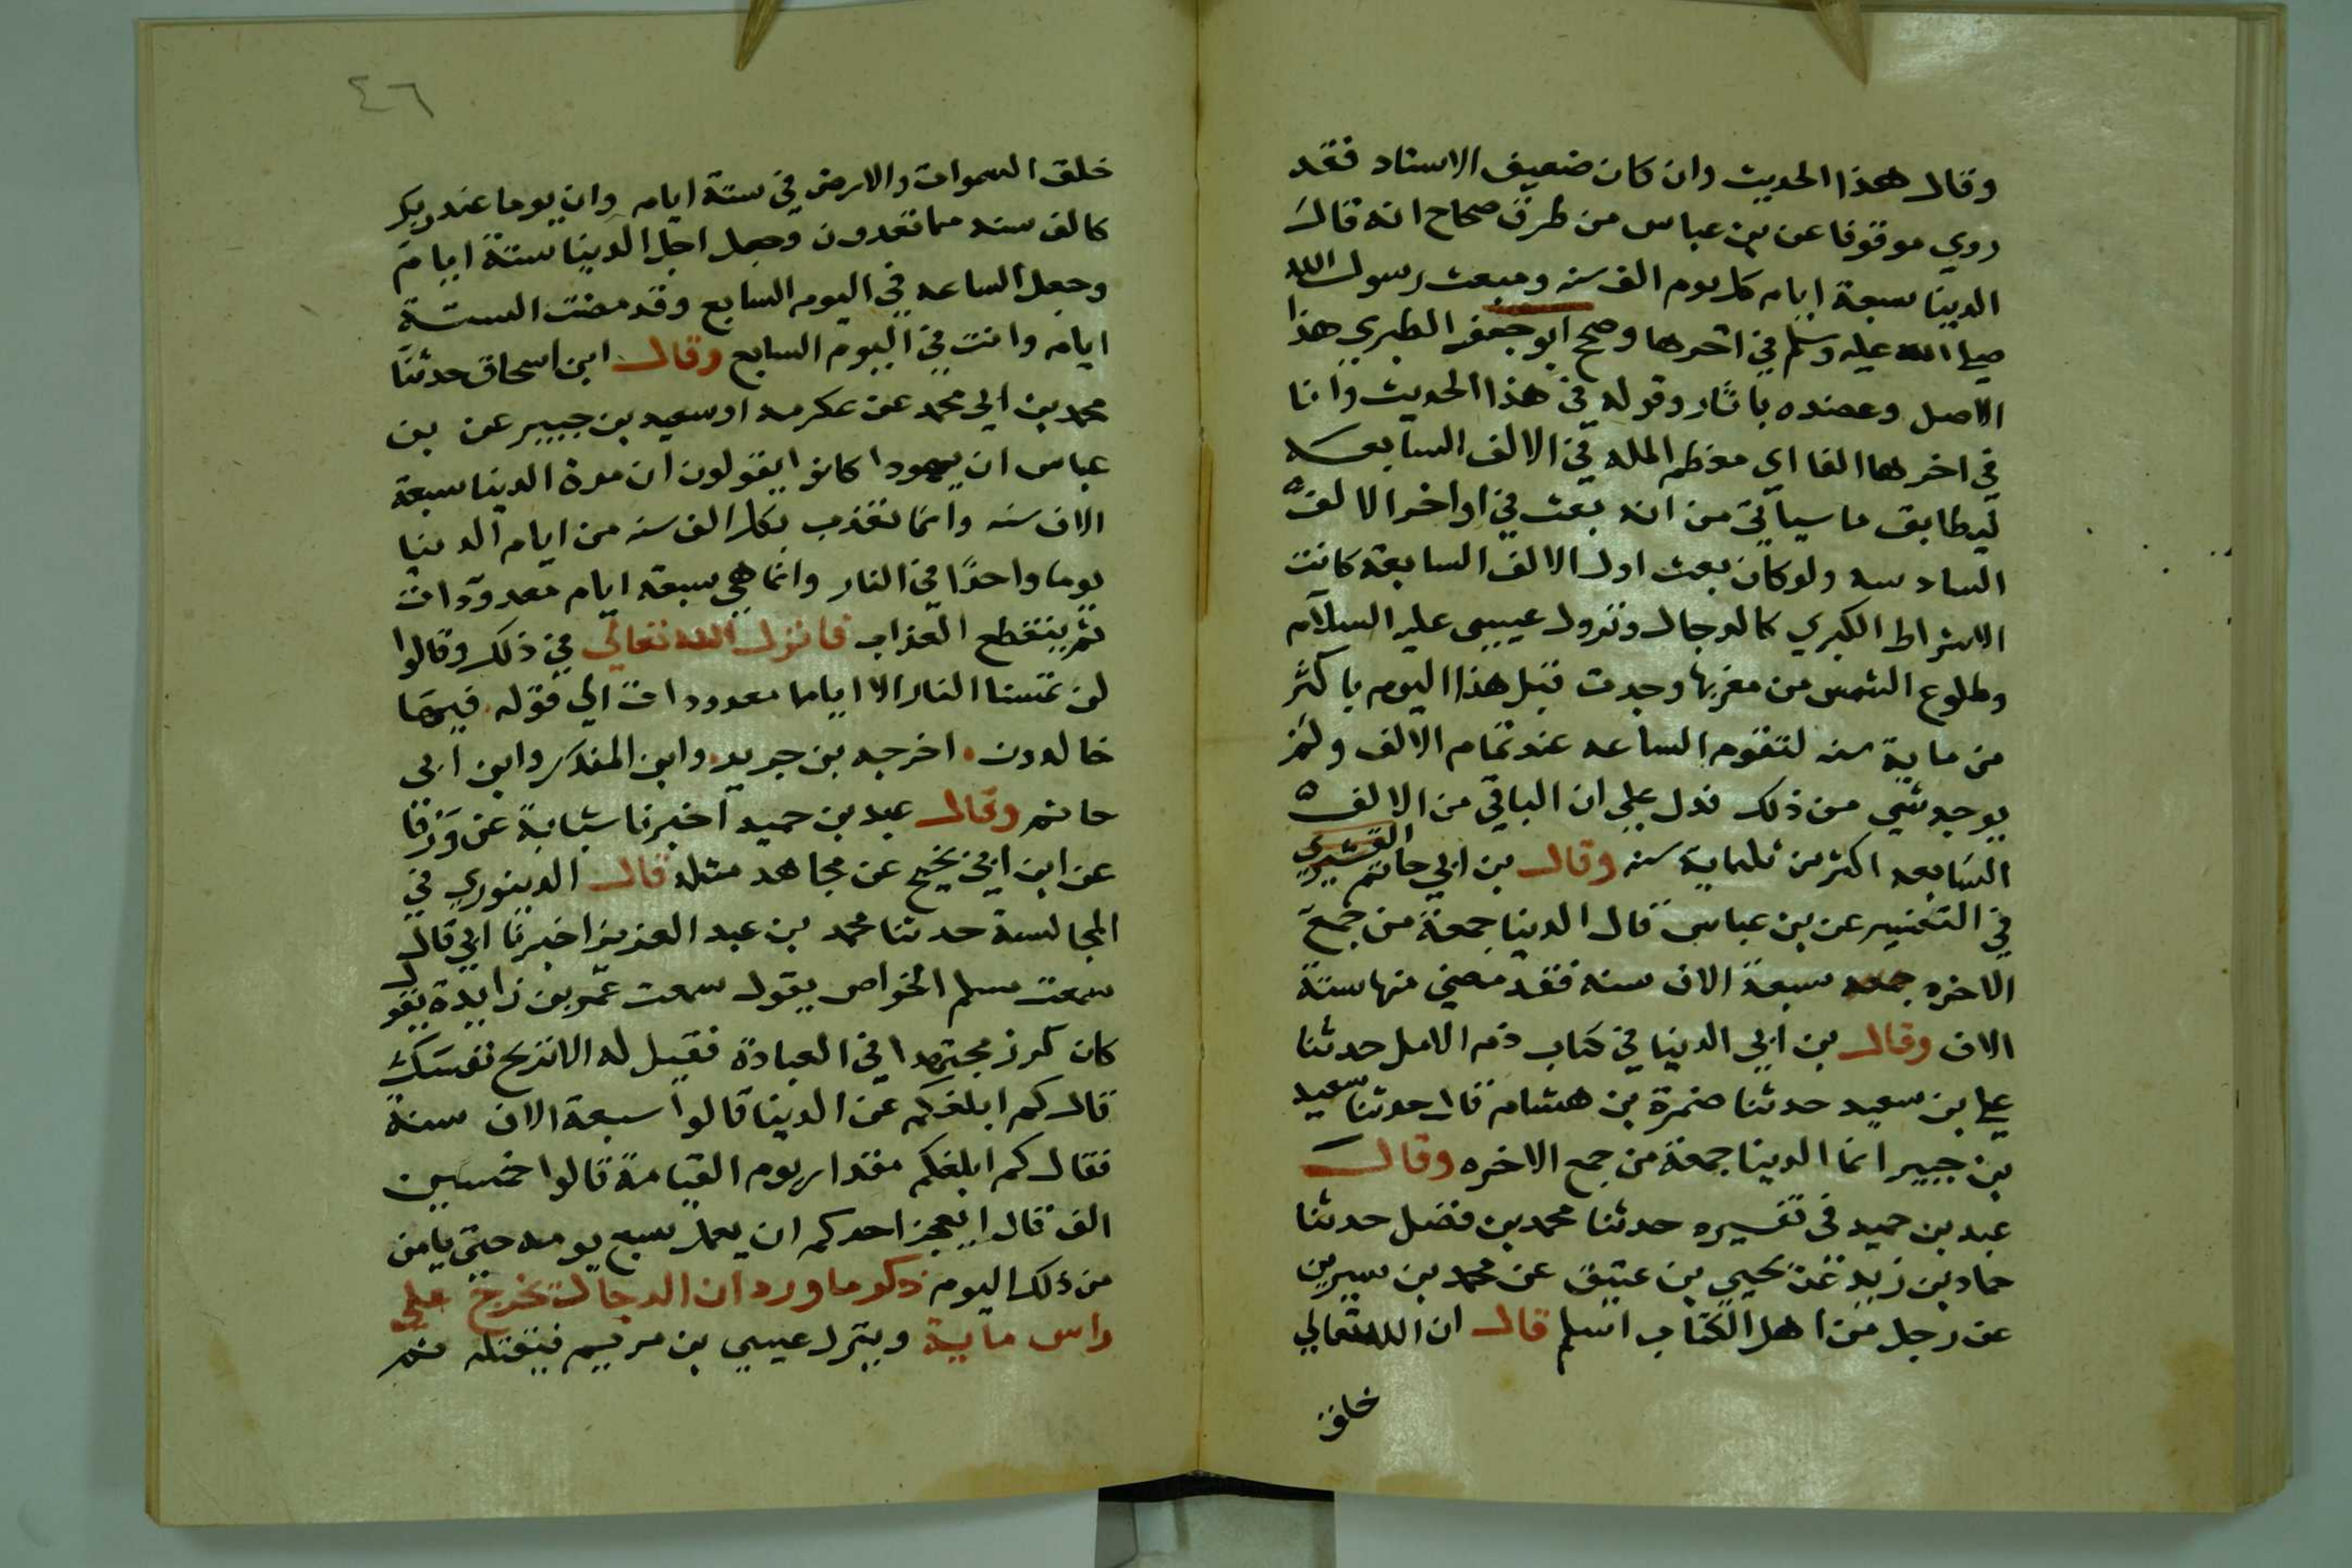 وقال هذا الحديث وان كان ضعيف الاسناد فقد
روي موقوفا عن بن عباس من طرق صحاح انه قال
الدينا سبعة ايام كل يوم الف سنه ومبعث رسول الله
صلي الله عليه وسلم في اخرها وصحح ابو جعفر الطبري هذا
الاصل وعضده باثار وقوله في هذا الحديث وانا
في اخرها الفا اي معظم المله في الالف السابعه
ليطابق ما سياتي من انه بعث في اواخر الالف
السادسه ولو كان بعث اول الالف السابعة كانت
الاشراط الكبري كالدجال ونزول عيسي عليه السلام
وطلوع الشمس من مغربها وجدت قبل هذا اليوم باكثر
من ماية سنه لتقوم الساعه عند تمام الالف ولم
يوجد شي من ذلك فدل علي ان الباقي من الالف
السابعه اكثر من ثلماية سنه وقال بن ابي حاتم القشيري
في التفسير عن بن عباس قال الدنيا جمعة من جمع
الاخره جمعه سبعة الاف سنه فقد مضي منها ستة
الاف وقال بن ابي الدنيا في كتاب ذم الامل حدثنا
علي بن سعيد حدثنا ضمرة بن هشام قال حدثنا سعيد
بن جبير انما الدينا جمعة من جمع الاخره وقال
عبد بن حميد في تفسيره حدثنا محمد بن فضل حدثنا
حماد بن زيد عن يحيي بن عتيق عن محمد بن سيرين
عن رجل من اهل الكتاب اسلم قال ان الله تعالي
خلق
٤٦
خلق السموات والارض في ستة ايام وان يوما عند ربك
كالف سنه مما تعدون وجعل اجل الدينا ستة ايام
وجعل الساعه في اليوم السابع وقد مضت الستة
ايام وانت في اليوم السابع وقال ابن اسحاق حدثنا
محمد بن ابي محمد عن عكرمه او سعيد بن جبير عن بن
عباس ان يهودا كانوا يقولون ان مدة الدينا سبعة
الاف سنه وانما نعذب بكل الف سنه من ايام الدنيا
يوما واحدًا في النار وانما هي سبعة ايام معدودات
ثم ينقطع العذاب فانزل الله تعالي في ذلك وقالوا
لن تمسنا النار الا اياما معدودات الي قوله فيها
خالدون اخرجه بن جرير وابن المنذر وابن ابي
حاتم وقال عبد بن حميد اخبرنا شبابة عن ورقا
عن ابن ابي نجيح عن مجاهد مثله قال الدينوري في
المجالسة حدثنا محمد بن عبد العزيز اخبرنا ابي قال
سمعت سلم الخواص يقول سمعت عمر بن زايدة يقول
كان كرز مجتهدا في العبادة فقيل له الا تريح نفسك
قال كم ابلغكم عن الدينا قالوا سبعة الاف سنة
فقال كم ابلغكم مقدار يوم القيامة قالوا خمسين
الف قال ايعجز احدكم ان يعمل سبع يومه حتي يامن
من ذلك اليوم ذكر ما ورد ان الدجال يخرج علي
راس ماية وينزل عيسي بن مريم فيقتله ثم